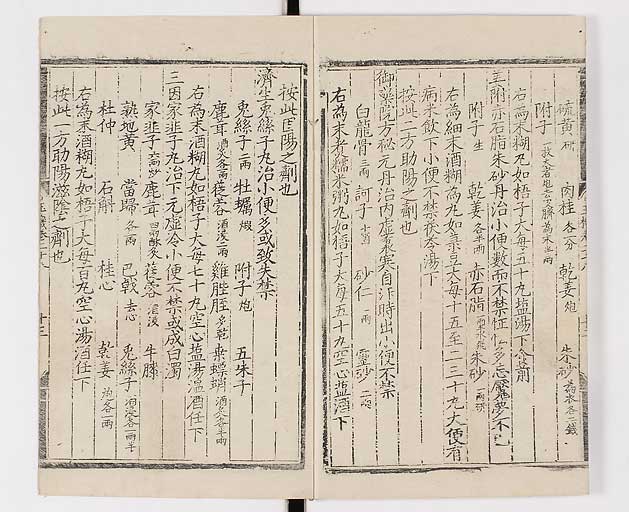 硫黄研 肉桂各分 乾姜炮 朱砂為衣各一錢
附子
右為末糊丸如梧子大每五十丸盐湯下食前
附赤石脂朱砂丹治小便数而不禁怔忡多忘魘夢不已
附子生 乾姜各半兩 赤石脂 朱砂一兩研
右為細末酒糊為丸如菉豆大每十五至二三十丸大便有
病米飲下小便不禁茯苓湯下
按此一方助陽之劑也
御藥院方秘元丹治内虛裏寒自汗時出小便不禁
白龍骨三兩 訶子十箇 砂仁一兩 靈砂二兩
右為末煮糯米粥丸如梧子大每五十丸空心盐酒下
按此壮陽之劑也
濟生兎絲子丸治小便多或致失禁
兎絲子二兩 牡蠣煅 附子炮 五味子
鹿茸酒炙各一兩 蓯蓉酒浸二兩 雞膍胵炙乾 桑螵蛸酒炙各半兩
右為末酒糊丸如梧子大每七十丸空心盐湯溫酒任下
三因家韭子丸治下元虛冷小便不禁或成白濁
家韭子六兩炒 鹿茸四兩酥炙 蓯蓉酒浸 牛膝
熟地黄 當歸各二兩 巴戟去心 兎絲子酒浸各一兩半
杜仲 石斛 桂心 乾姜炮各一兩
右為末酒糊丸如梧子大每百丸空心湯酒任下
按此一方助陽滋陰之劑也